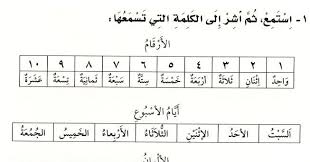 ١- اِسْتَمِعْ، ثُمَّ أَشِرْ إِلَى الكَلِمَةِ الَّتِي تَسْمَعُهَا:
الأَرْقَامُ
١ ٢ ٣ ٤ ٥ ٦ ٧ ٨ ٩ ١٠
وَاحِدٌ اِثْنَانِ ثَلَاثَةٌ أَرْبَعَةٌ خَمْسَةٌ سِتَّةٌ سَبْعَةٌ ثَمَانِيَةٌ تِسْعَةٌ عَشَرَةٌ
أَيَّامُ الأُسْبُوعِ
السَّبْتُ الأَحَدُ الاِثْنَيْنِ الثُّلَاثَاءُ الأَرْبِعَاءُ الخَمِيسُ الجُمُعَةُ